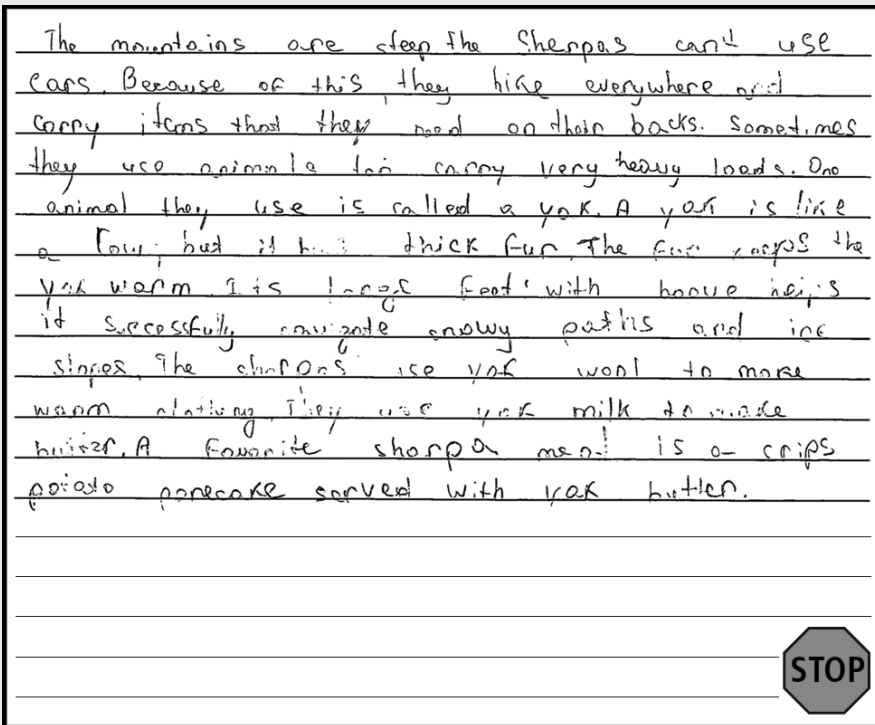 The mountains are steep the Sherpas can't use
cars. Because of this, they hike everywhere and
carry items that they need on their backs. Sometimes
they use animals for carry very heavy loads. One
animal they use is called a yak. A yak is like
a cow; but it has thick fur. The fur keeps the
yak warm. Its large feet with
it successfully navigate snowy paths and
slopes. The use yak wool to make
warm They use yak milk to make
butter. A favorite sherpa meal is a crips
potato panecake served with yak butter.
STOP